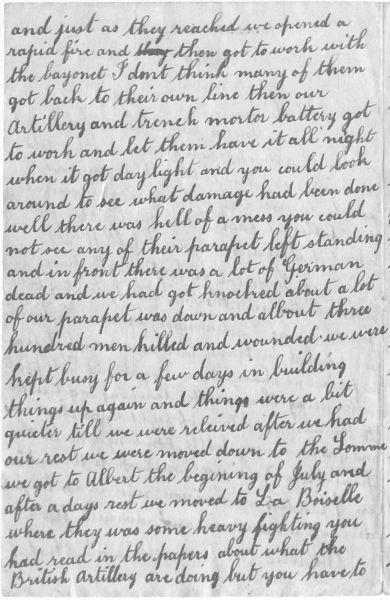 and just as they reached we opened a
rapid fire and they then got to work with
the bayonet I dont think many of them
got back to their own line then our
Artillery and trench mortor battery got
to work and let them have it all night
when it got daylight and you could look
around to see what damage had been done
well there was hell of a mess you could
not see any of their parapet left standing
and in front there was a lot of German
dead and we had got knocked about a lot
of our parapet was down and albout three
hundred men killed and wounded. we were
kept busy for a few days in building
things up again and things were a bit
quieter till we were releived after we had
our rest we were moved down to the Somme
we got to Albert the begining of July and
after a days rest we moved to La Boiselle
where they was some heavy fighting you
had read in the papers about what the
British Artillery are doing but you have to